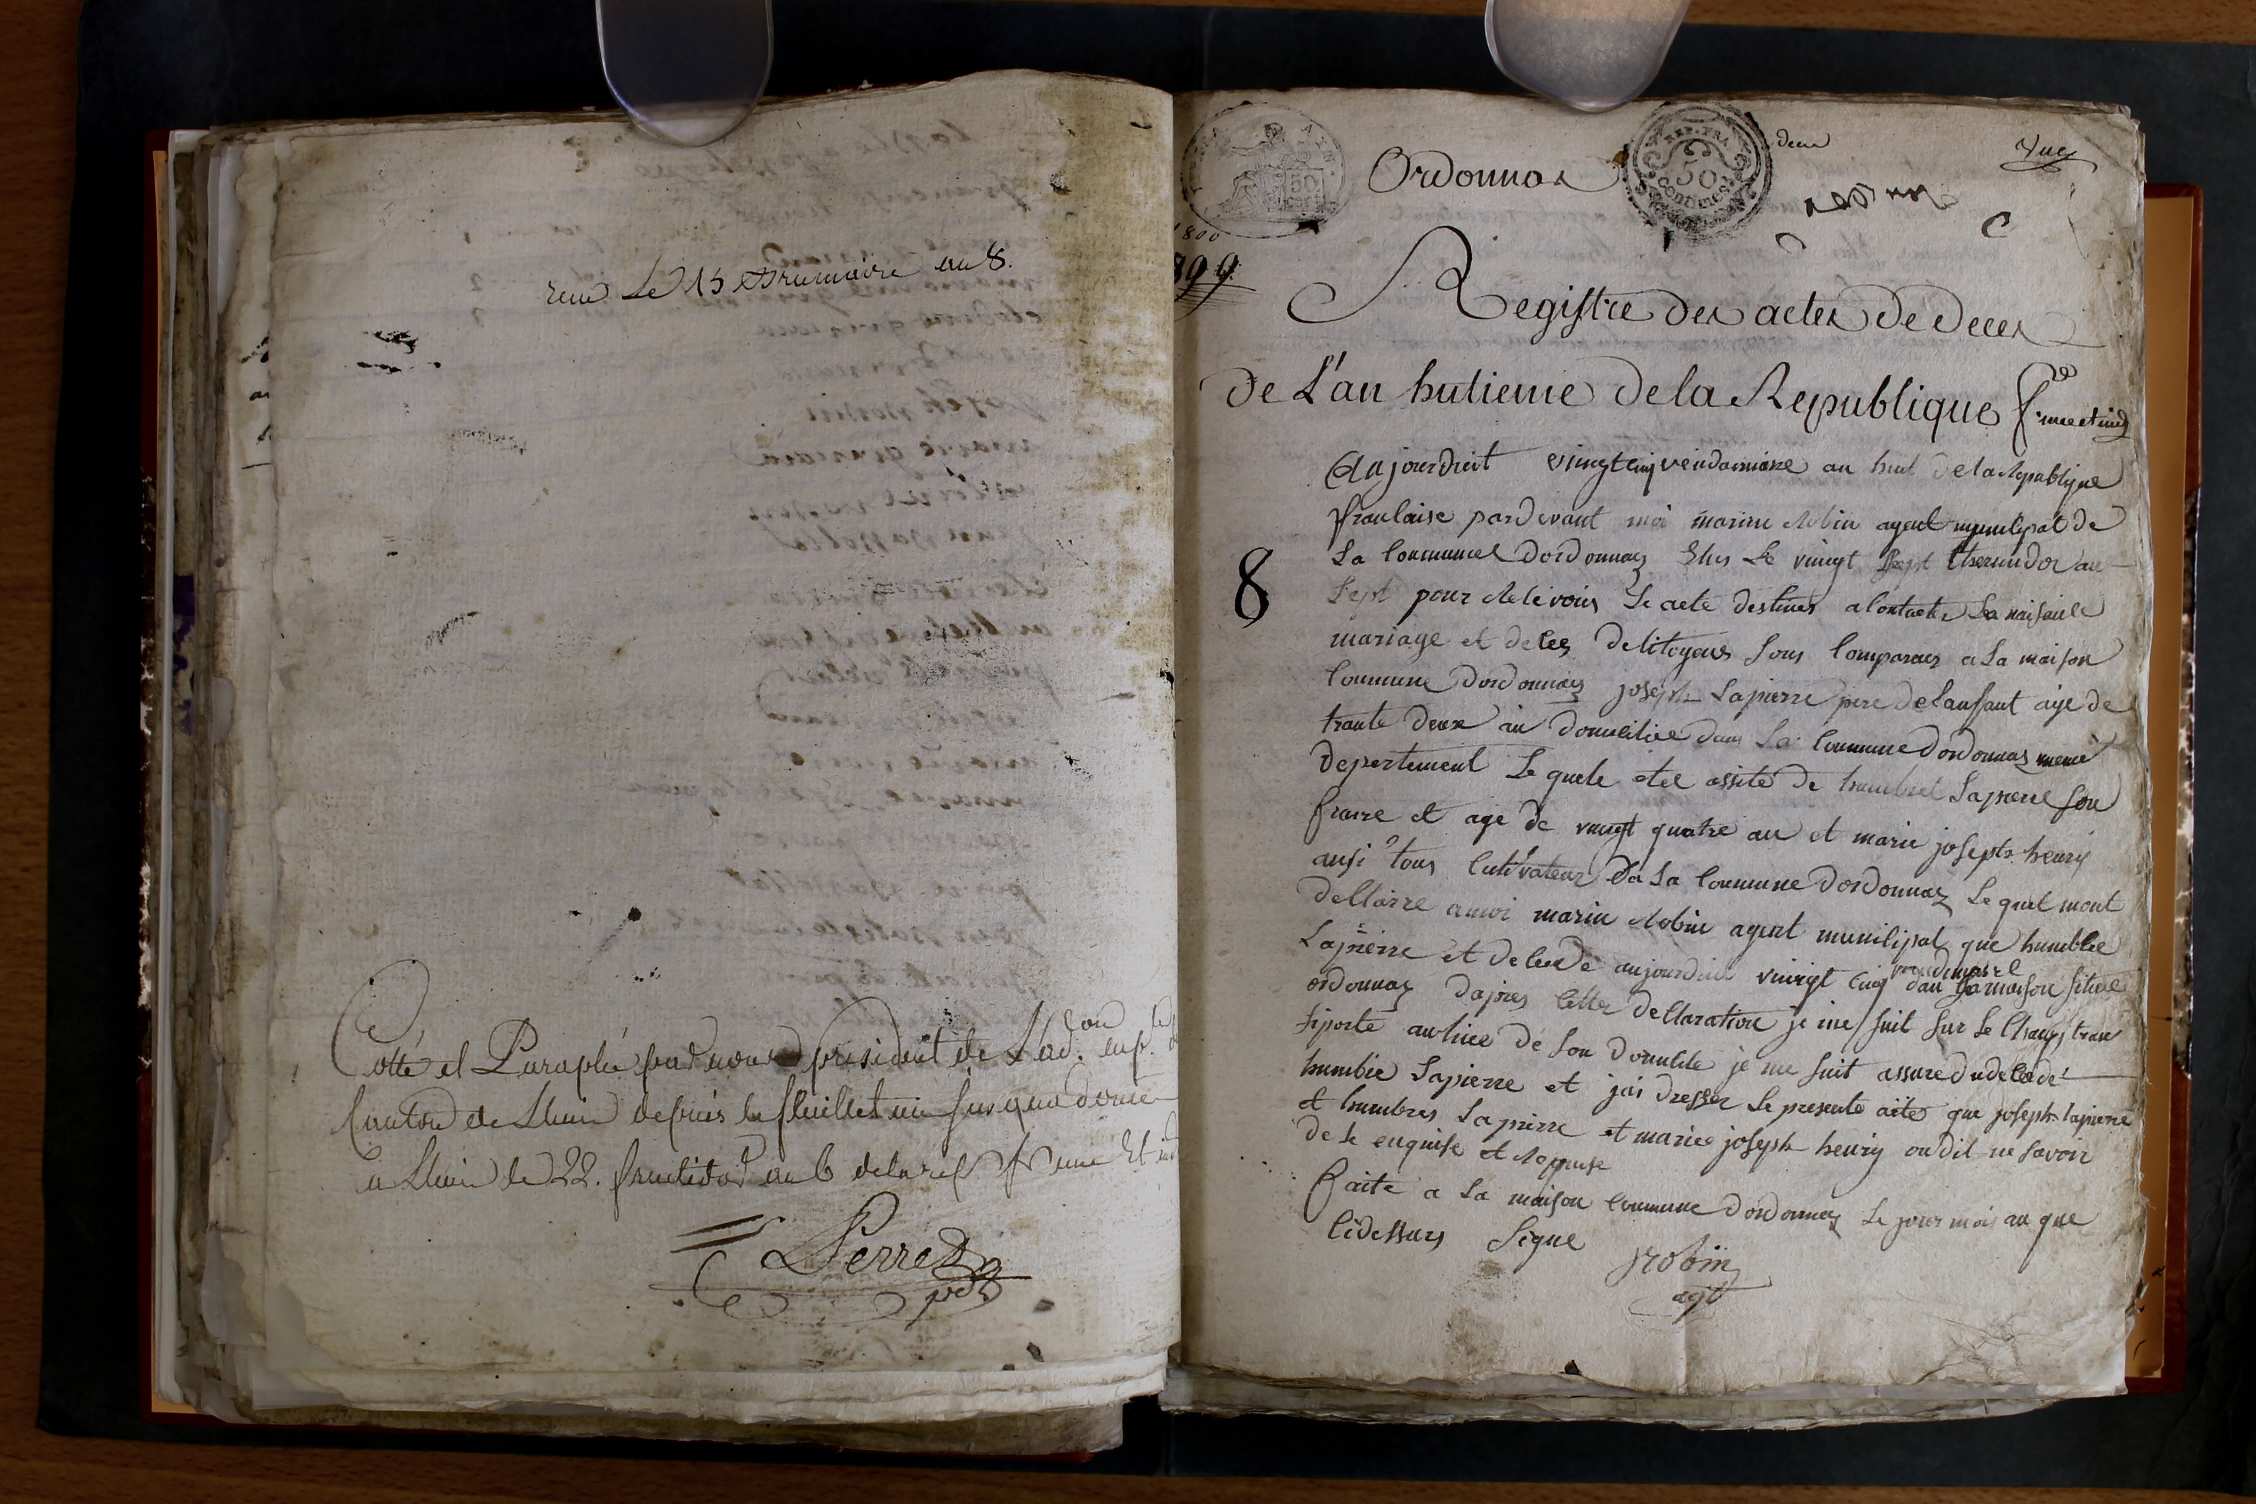 reme Le 15 Brumaire an 8.
Cotté et Paraphé par nous president de L'ad.on
Canton de Lhuis depuis le feuillet un jusqua douze
a Lhuis le 22. fructidor an 6 de la rep f une et
Perret
pdt
Ordonnas
REP. FRA.
50
CENTIMES
deux
1800
899
Registre des actes de deces
de L'an huitieme de la Republique f.se une et ind
Aujourdhuit vingt cinq vendemiaire an huit de la Republique
francaise pardevant moi marin Robin agent municipal de
La Commune Dordonnas Elus Le vingt sept thermidor an
8
Sept pour Relevoir Le acte destines a Contater La naisance
mariage et deces de Citoyens sons Comparus a La maison
Commune Dordonnas joseph Lapierre pere de Lanfant age de
trante deux an domicilié dans La Commune Dordonnas meme
Departement Le quele etee assite de humbert Lapierre son
fraire et age de vingt quatre an et marie joseph henry
ausi tous Cultivateur de La Commune Dordonnas Le quel mont
declarre a moi marin Robin agent municipal que humbee
Lapierre et decede aujourdhui vingt cinq vendemiaire dan sa maison situee
ordonnas dapres cette declaration je me suit sur Le Champ tran
sporte au lieu de son domicile je me suit assure du decede
humbee Lapierre et jai dresser Le presente acte que joseph lapierre
et humbres Lapierre et marie joseph henry on dit ne savoir
de se enquise et Requise
faite a La maison Commune Dordonnas Le jour mois an que
Cidessurs Signe
Robin
agt